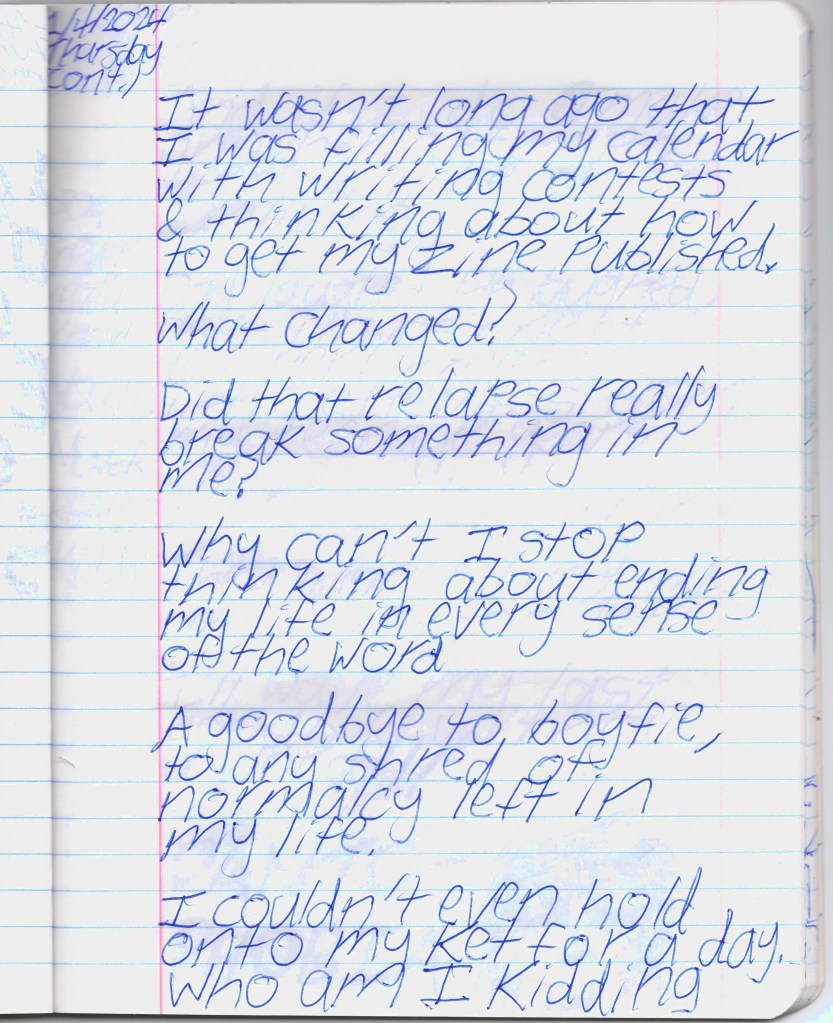 1/4/2024
Thursday
cont.)
It wasn't long ago that
I was filling my calendar
with writing contests
& thinking about how
to get my zine published.
What changed?
Did that relapse really
break something in
me?
Why can't I stop
thinking about ending
my life in every sense
of the word
A goodbye to boyfie,
to any shred of
normalcy left in
my life.
I couldn't even hold
onto my ket for a day.
Who am I kidding